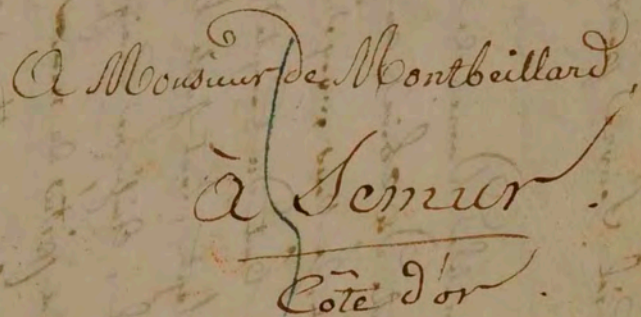 A Monsieur de Montbeillard,
à Semur.
Côte d'or.